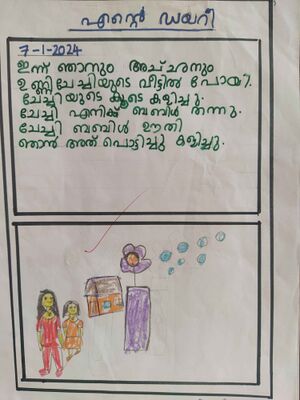 എന്റെ ഡയറി
7-1-2024
ഇന്ന് ഞാനും അച്ഛനും
ഉണ്ണിചേച്ചിയുടെ വീട്ടിൽ പോയി.
ചേച്ചിയുടെ കൂടെ കളിച്ചു.
ചേച്ചി എനിക്ക് ബബിൾ തന്നു.
ചേച്ചി ബബിൾ ഊതി
ഞാൻ അത് പൊട്ടിച്ചു കളിച്ചു.